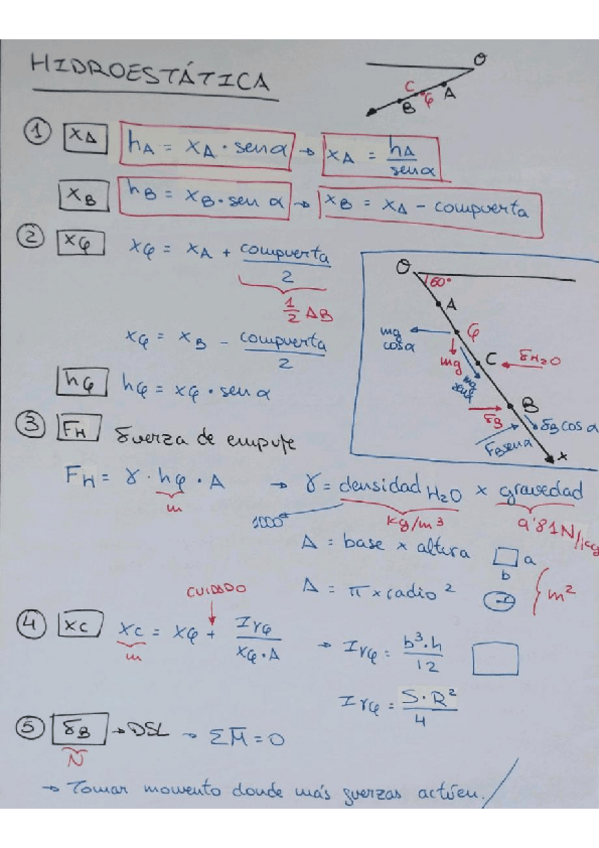 HIDROESTÁTICA
O
C
B
G
A
① xA hA = xA · senα → xA = hA/senα
xB hB = xB · senα → xB = xA - compuerta
② xG xG = xA + compuerta/2
1/2 AB
xG = xB - compuerta/2
hG hG = xG · senα
O
60°
A
G
mg cosα
mg
mg senα
C
FH2O
B
FB
FB cosα
FB senα
x
③ FH Fuerza de empuje
FH = γ · hG · A → γ = densidad H2O x gravedad
m
1000
kg/m³
9'81N/kg
A = base x altura
a
b
A = π x radio²
r
m²
CUIDADO
④ xC xC = xG + IrG/xG·A → IrG = b³·h/12
m
IrG = S·R²/4
⑤ FB → DSL → ΣM̄ = 0
N
→ Tomar momento donde más fuerzas actúen.